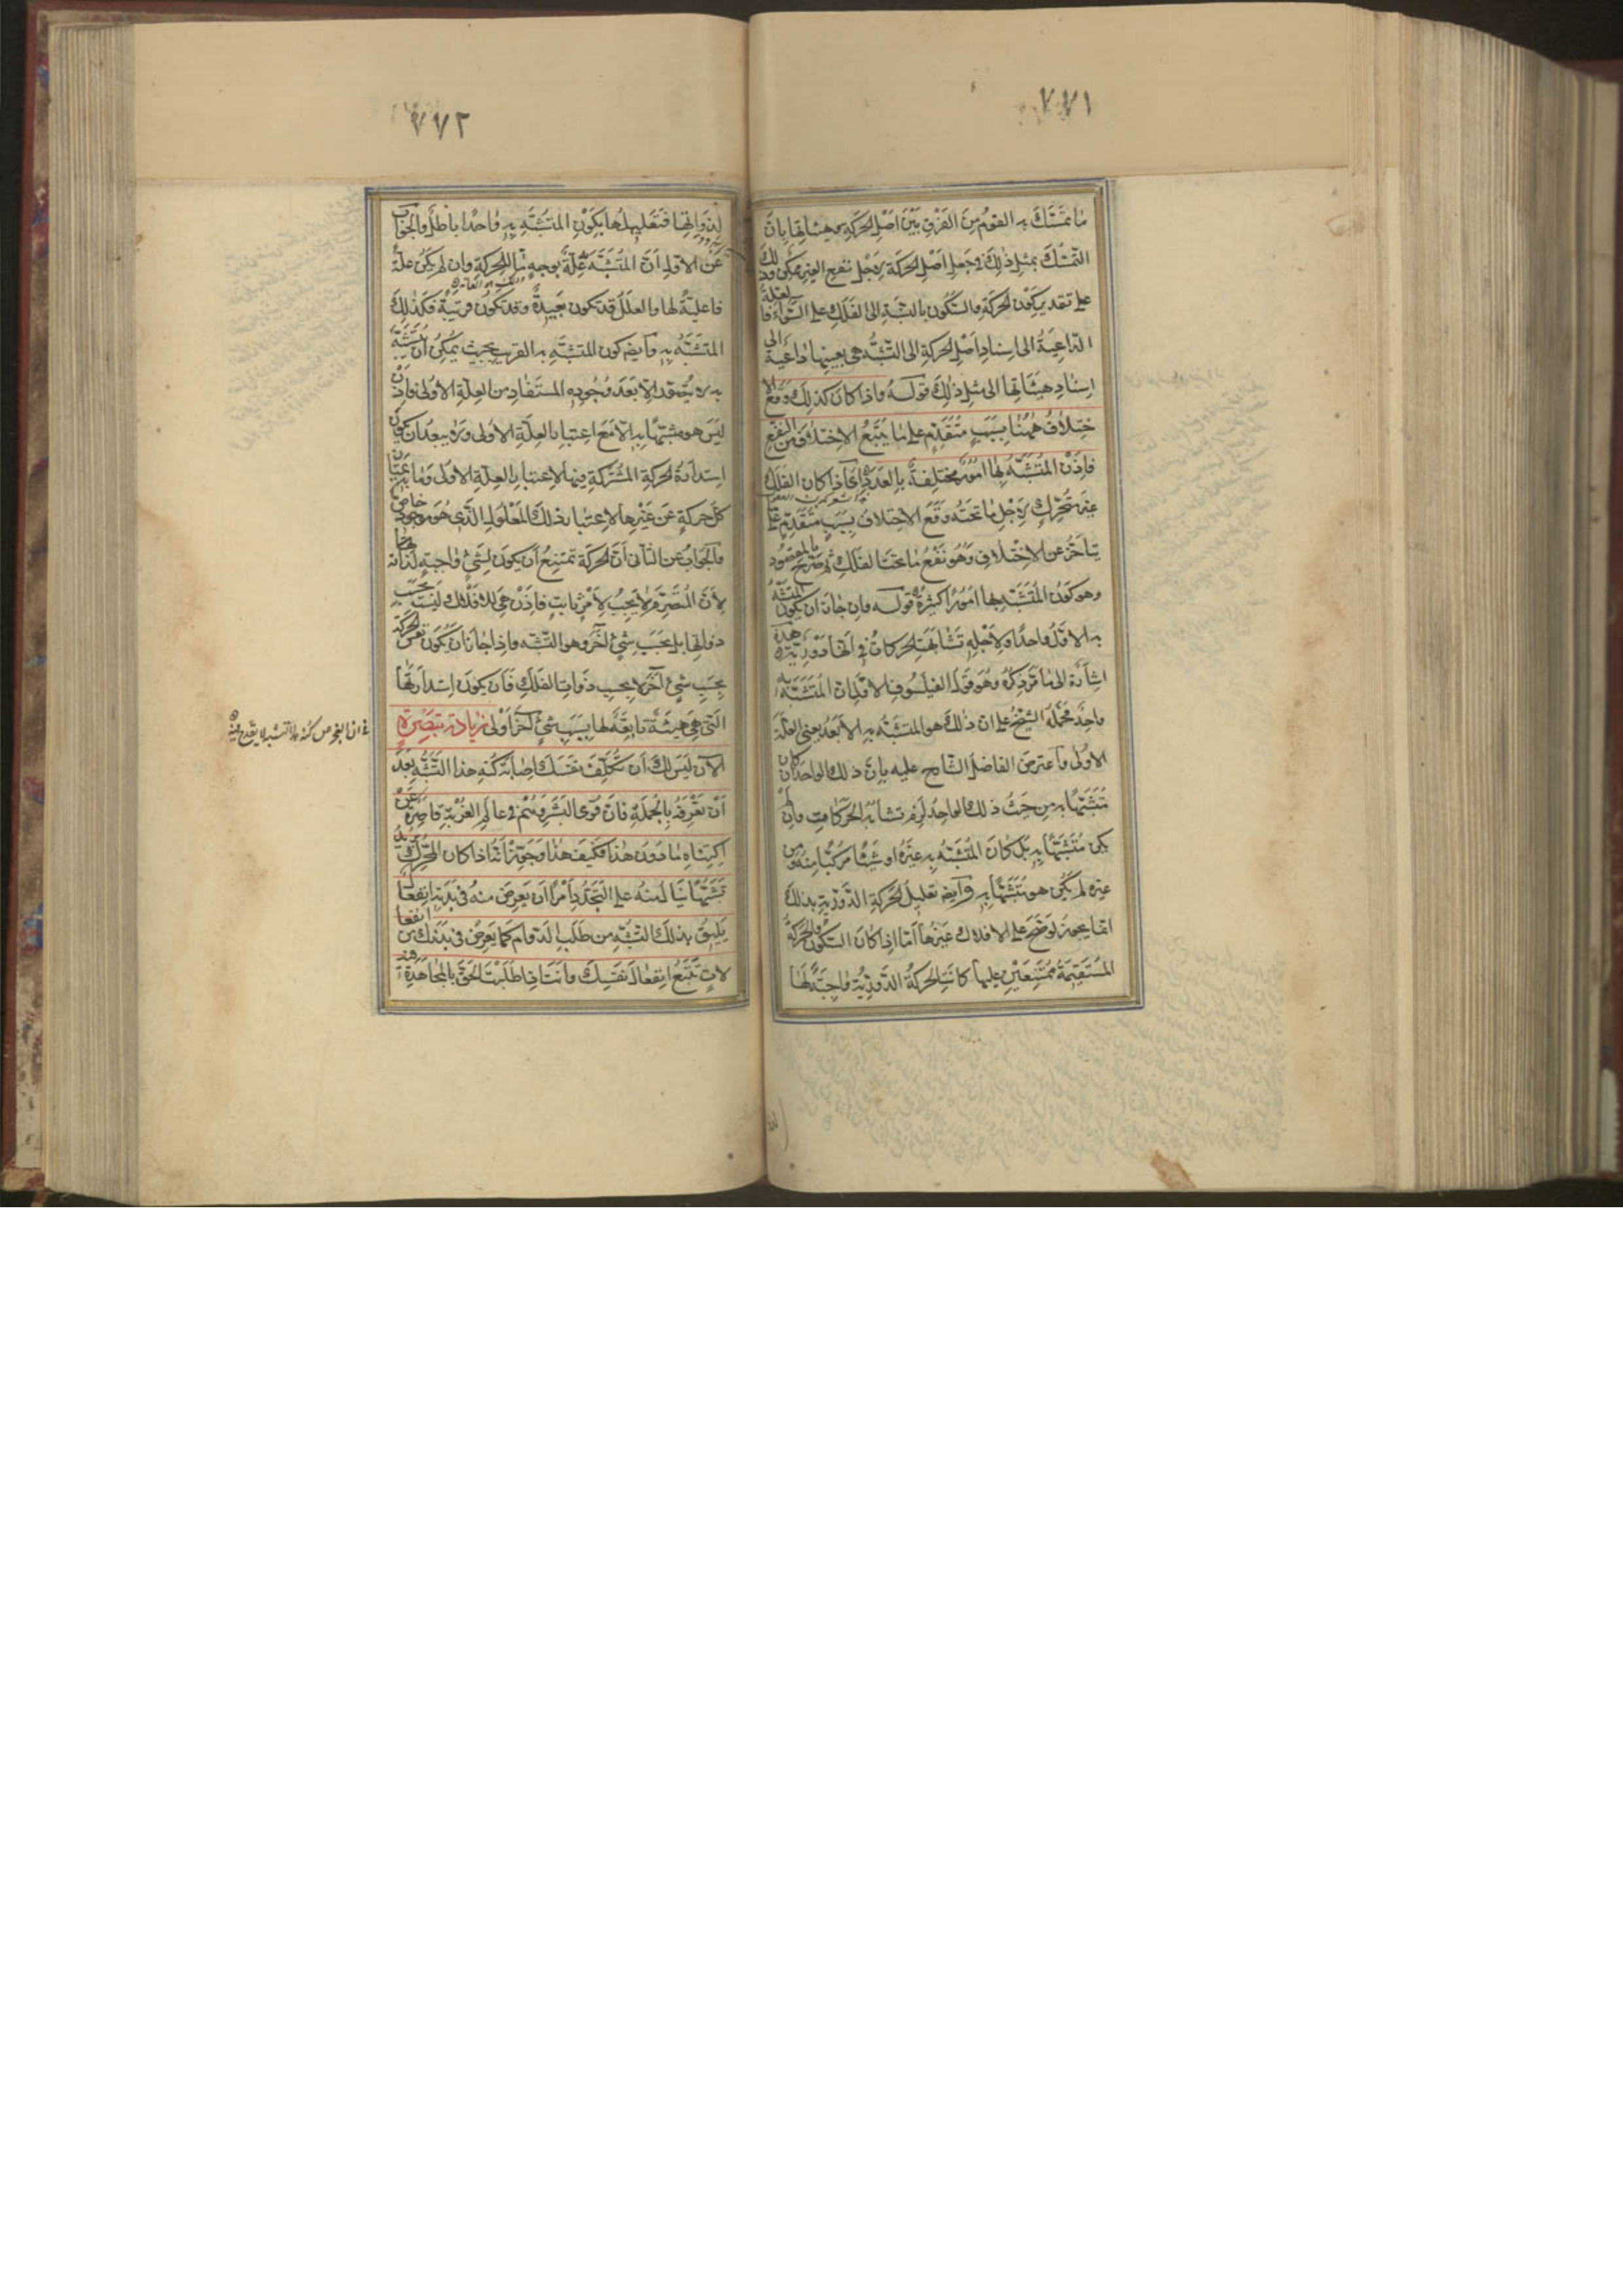 ٧٧١
ما تمسّك به القوم من الفرق بين اصل الحركة و هيئاتها بان
التمسّك بمثل ذلك في جعل اصل الحركة لاجل نفع الغير ممكن وذلك
على تقدير كون الحركة والسّكون بالنسبة الى الفلك على السّواء فالعلّة
الدّاعية الى اسناد اصل الحركة الى التشبّه هي بعينها داعية الى
اسناد هيئاتها الى مثل ذلك قوله واذا كان كذلك وقع الا
ختلاف ههنا بسبب متقدّم على ما يتبع الاختلاف من النفع
فاذن المتشبّه بها امور مختلفة بالعدد اي اذا كان الفلك
غير متحرّك لاجل ما تحته وقع الاختلاف بسبب متقدّم على ما
يتأخّر عن الاختلاف وهو نفع ما تحت الفلك ثم صرّح بالمقصود
وهو كون المتشبّه بها امورا كثيرة قوله وان جاز ان يكون المتشبّه
به الاوّل واحدا ولاجله تشابهت الحركات في انّها دوريّة هذه
اشارة الى ما مرّ ذكره وهو قول الفيلسوف الاوّل ان المتشبّه به
واحد فحمله الشيخ على انّ ذلك هو المتشبّه به الابعد يعني العلّة
الاولى واعترض الفاضل الشارح عليه بان ذلك الواحد ان كان
متشبّها به من حيث ذلك الواحد لزم تشابه الحركات وان لم
يكن متشبّها به بل كان المتشبّه به غيره او شيئا مركّبا منه ومن
غيره لم يكن هو متشبّها به وايضا تعليل الحركة الدّوريّة بذلك
انّما يجوز لو صحّ على الافلاك غيرها امّا اذا كان السّكون والحركة
المستقيمة ممتنعين عليها كانت الحركة الدّوريّة واجبة لها
٧٧٢
لذواتها فتعليلها بكون المتشبّه به واحدا باطل والجواب
عن الاوّل انّ المتشبّه به علّة بوجه ما للحركة وان لم يكن علّة
فاعليّة لها والعلل قد تكون بعيدة وقد تكون قريبة فكذلك
المتشبّه به وايضا كون المتشبّه به القريب بحيث يمكن ان يتشبّه
به لا يتحقّق الا بعد وجوده المستفاد من العلّة الاولى فاذن
ليس هو متشبّها به الا مع اعتبار العلّة الاولى ولا يبعد ان يكون
استدارة الحركة المشتركة فيها لاعتبار العلّة الاولى وما به يمتاز
كل حركة عن غيرها لاعتبار ذلك المعلول الذي هو موجود خاص
والجواب عن الثاني ان الحركة تمتنع ان يكون لشئ واجبة لذاته
لان المتصرّم لا يجب لامر ثابت فاذن هي للافلاك ليست بحسب
ذواتها بل بحسب شئ آخر وهو التشبّه واذا جاز ان يكون نفس الحركة
بحسب شئ آخر لا بحسب ذوات الفلك فان يكون استدارتها
التي هي هيئة تابعة لها بسبب شئ آخر اولى زيادة تبصرة
الآن ليس لك ان تكلّف نفسك اصابة كنه هذا التشبّه بعد
ان تعرفه بالجملة فان قوى البشر وهم في عالم الغربة قاصرة عن
اكتناه ما دون هذا فكيف هذا وجوّز انّه اذا كان المحرّك يريد
تشبّها ينال منه على التجدّد امرا ان يعرض منه في بدنه انفعال
يليق بذلك التشبّه من طلب الدوام كما يعرض في بدنك من انفعا
لات تتبع انفعال نفسك وانت اذا طلبت الحق بالمجاهدة
في ان الفحص كنه هذا التشبه لا